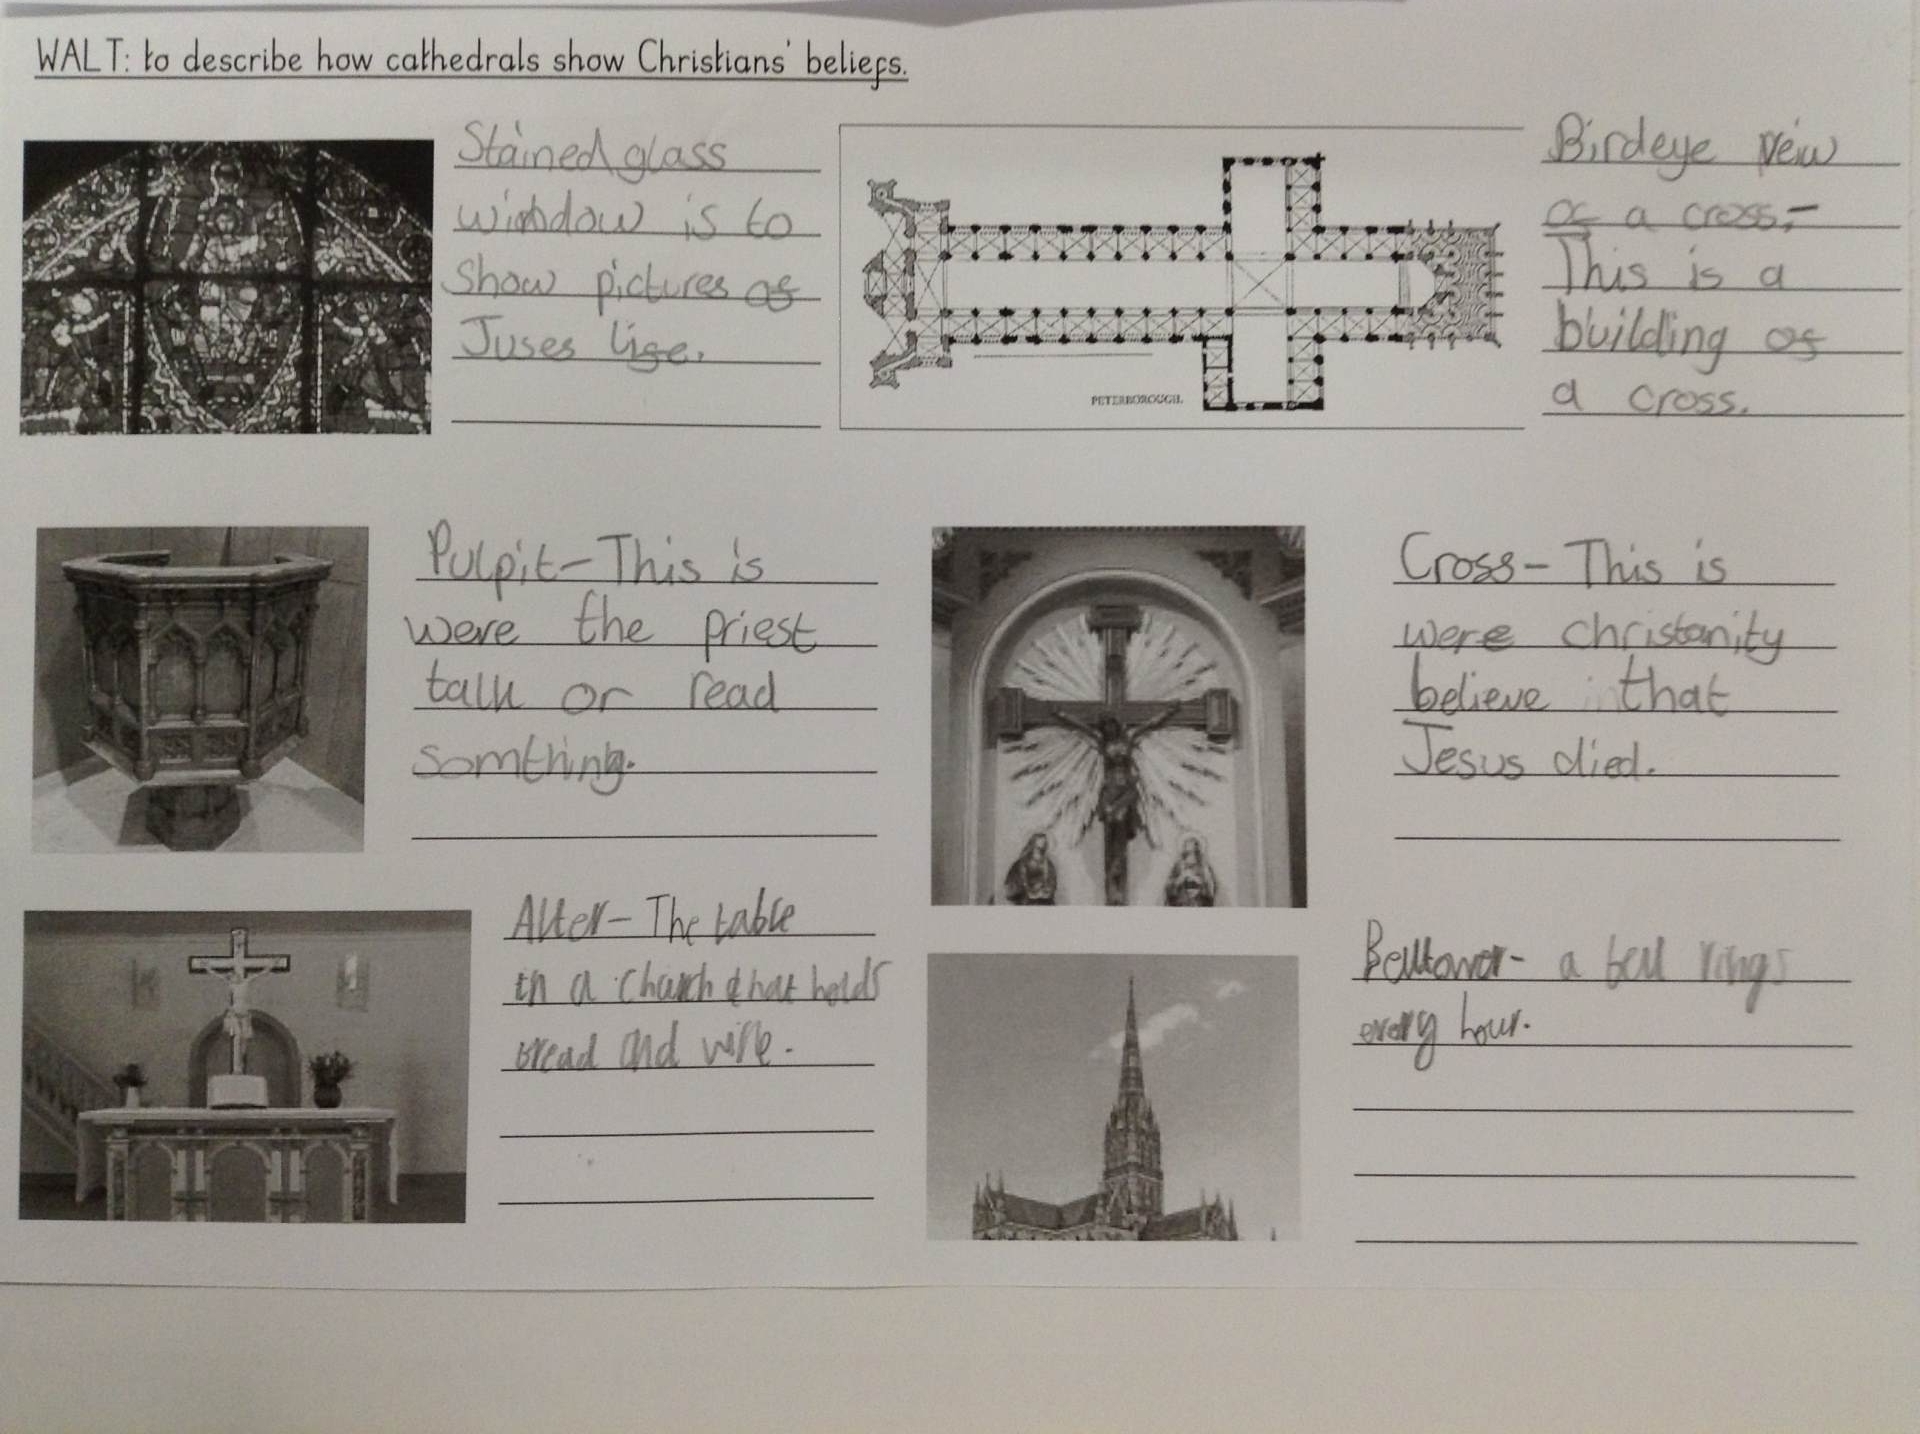 WALT: to describe how cathedrals show Christians' beliefs.
Stained glass
window is to
show pictures of
Juses life.
PETERBOROUGH.
Birdeye veiw
of a cross,-
This is a
building of
a cross.
Pulpit- This is
were the priest
talk or read
somthing.
Cross- This is
were christanity
believe that
Jesus died.
Alter- The table
in a church that holds
bread and wine.
Belltower- a bell rings
every hour.